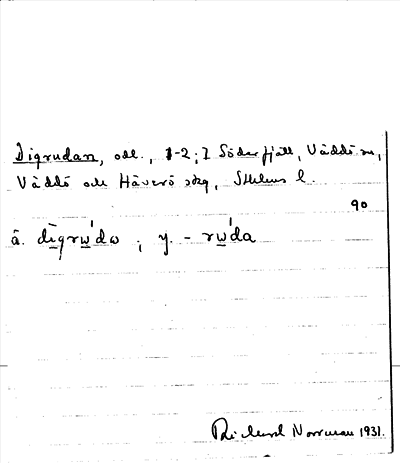 Digrudan, odl., 1-2; I Söderfjäll, Väddö sn,
Väddö och Häverö skg, Sthlms l.
90
ä. dìgrw'dω ; y. - rw'da
Richard Norrman 1931.